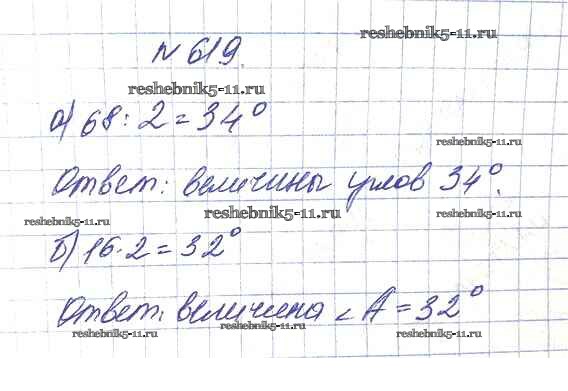 reshebnik5-11.ru
№ 619.
reshebnik5-11.ru
а) 68 : 2 = 34°
reshebnik5-11.ru
Ответ: величины углов 34°.
reshebnik5-11.ru reshebnik5-11.ru
б) 16 · 2 = 32°
reshebnik5-11.ru
Ответ: величина ∠ А = 32°
reshebnik5-11.ru reshebnik5-11.ru reshebnik5-11.ru